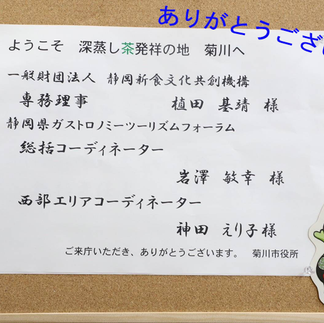 ありがとうござい
ようこそ 深蒸し茶発祥の地 菊川へ
一般財団法人 静岡新食文化共創機構
専務理事 植田 基靖 様
静岡県ガストロノミーツーリズムフォーラム
総括コーディネーター
岩澤 敏幸 様
西部エリアコーディネーター
神田 えり子様
ご来庁いただき、ありがとうございます。 菊川市役所